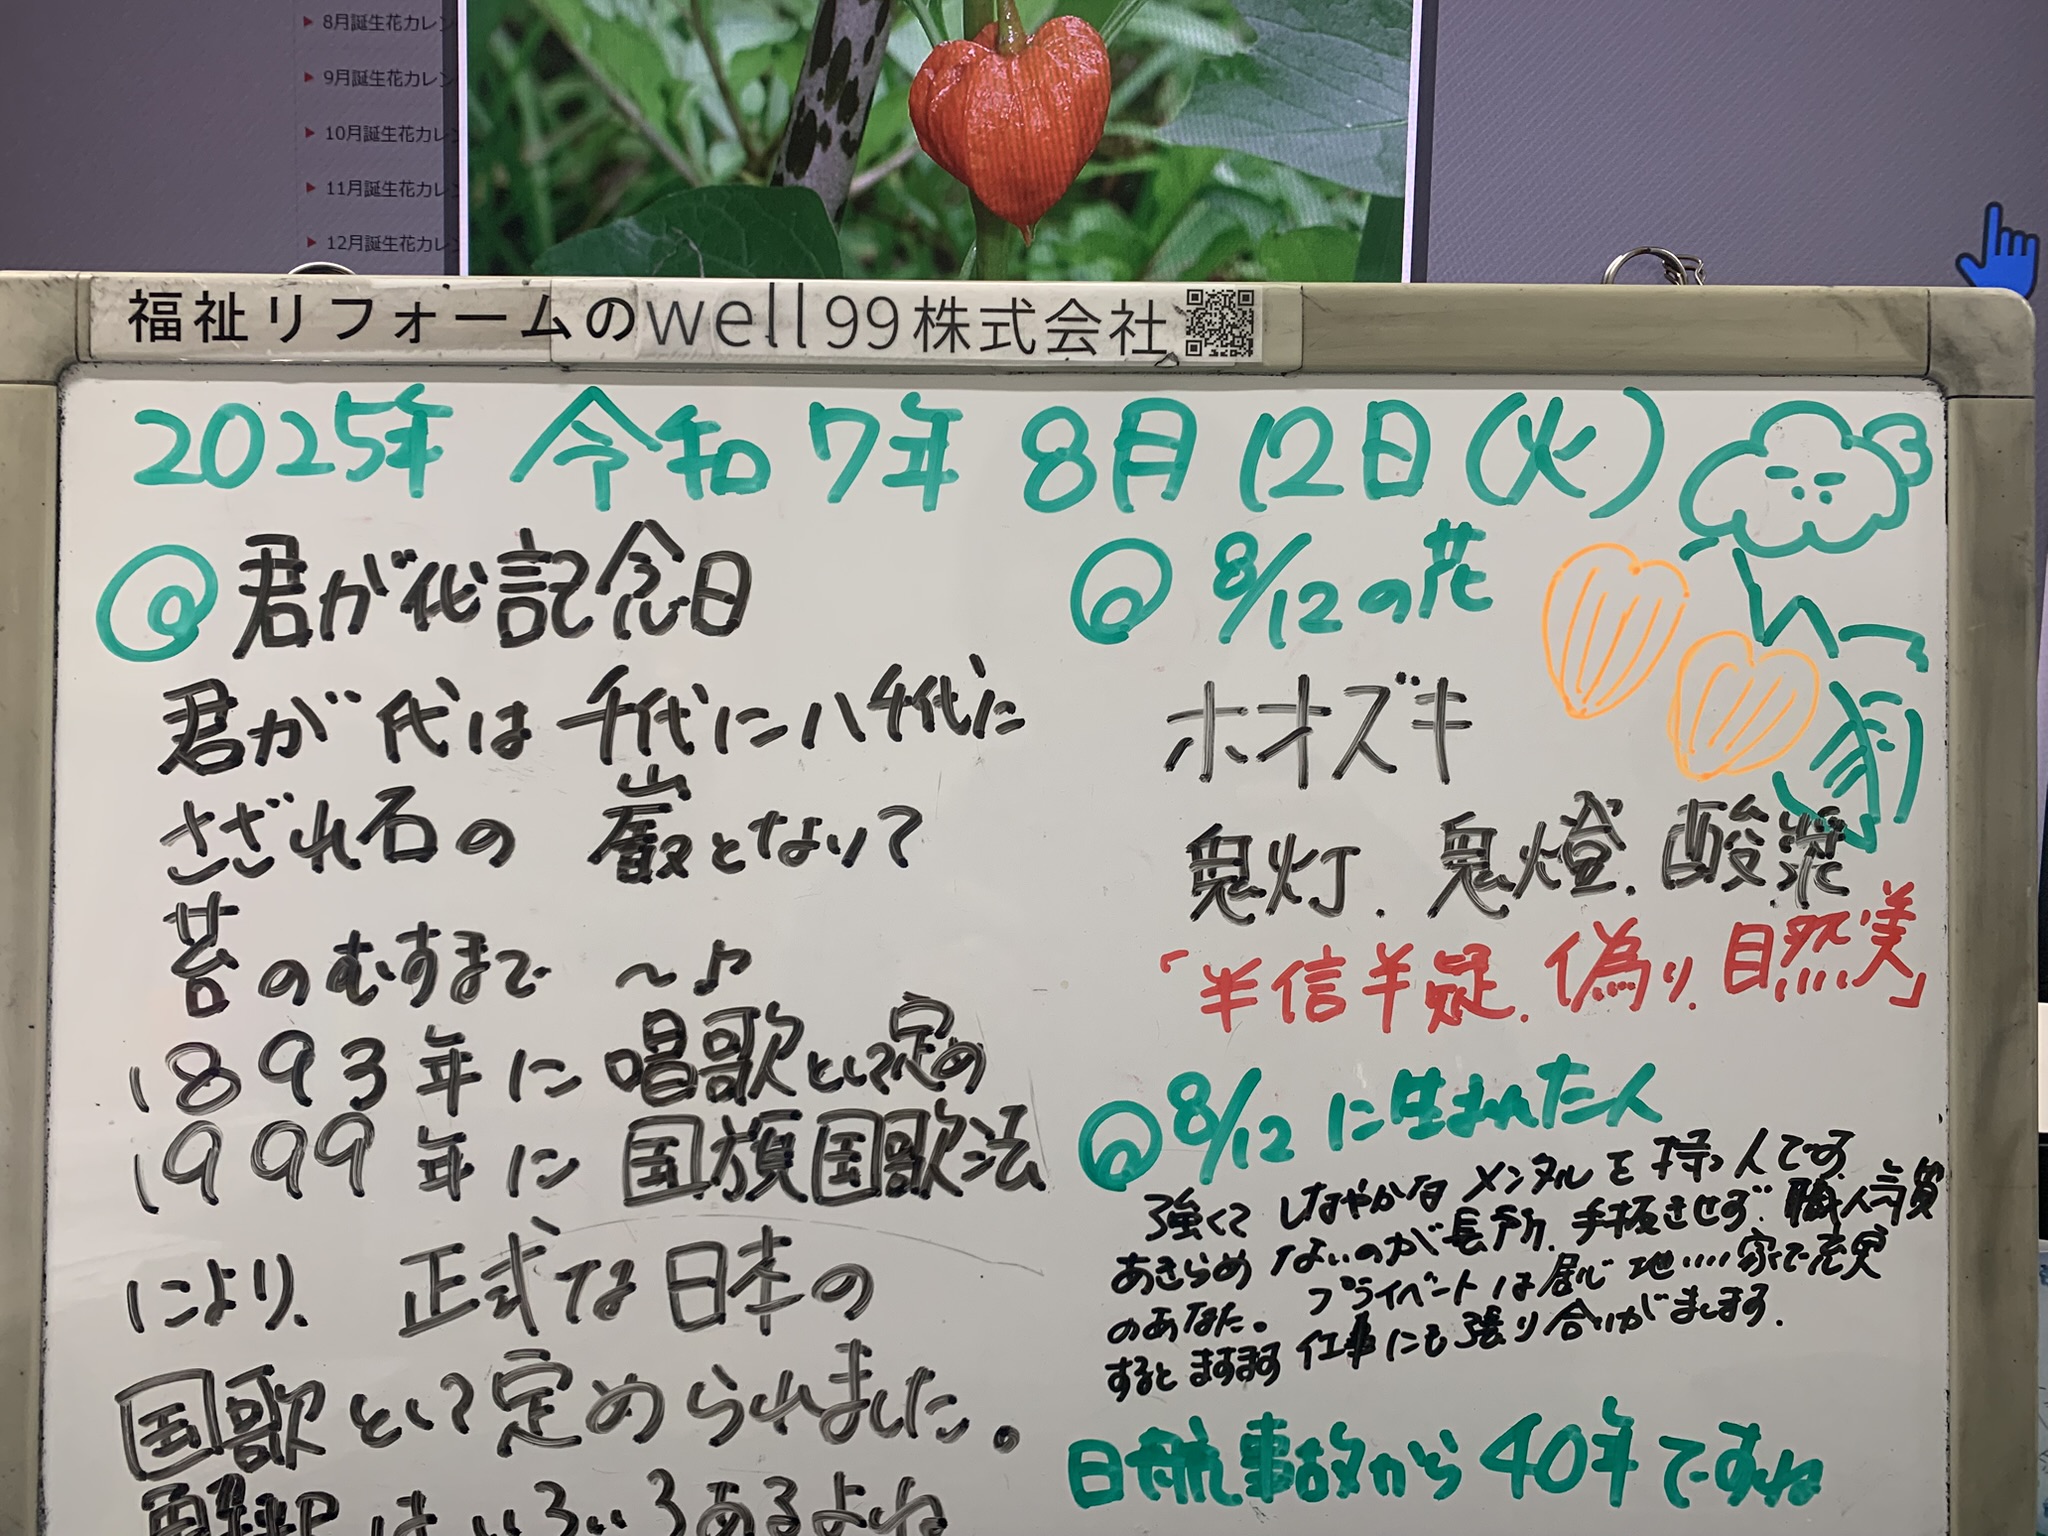 8月誕生花カレン
9月誕生花カレン
10月誕生花カレン
11月誕生花カレン
12月誕生花カレン
福祉リフォームのwell99株式会社
2025年 令和7年 8月12日(火)
君が代記念日
君が代は千代に八千代に
さざれ石の 巌となりて
苔のむすまで 〜♪
1893年に唱歌として定め
1999年に国旗国歌法
により、正式な日本の
国歌として定められました。
解釈はいろいろあるよね
8/12の花
ホオズキ
鬼灯.鬼燈.酸漿
「半信半疑.偽り.自然美」
8/12に生まれた人
強くてしなやかなメンタルを持つ人です
あきらめないのが長所.手抜きせず.職人気質
のあなた。プライベートは居心地....家で充実
するとますます仕事にも張り合いがまします.
日航事故から40年ですね